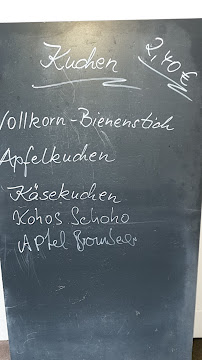 Kuchen 2,40 €
Vollkorn-Bienenstich
Apfelkuchen
Käsekuchen
Kokos Schoko
Apfel